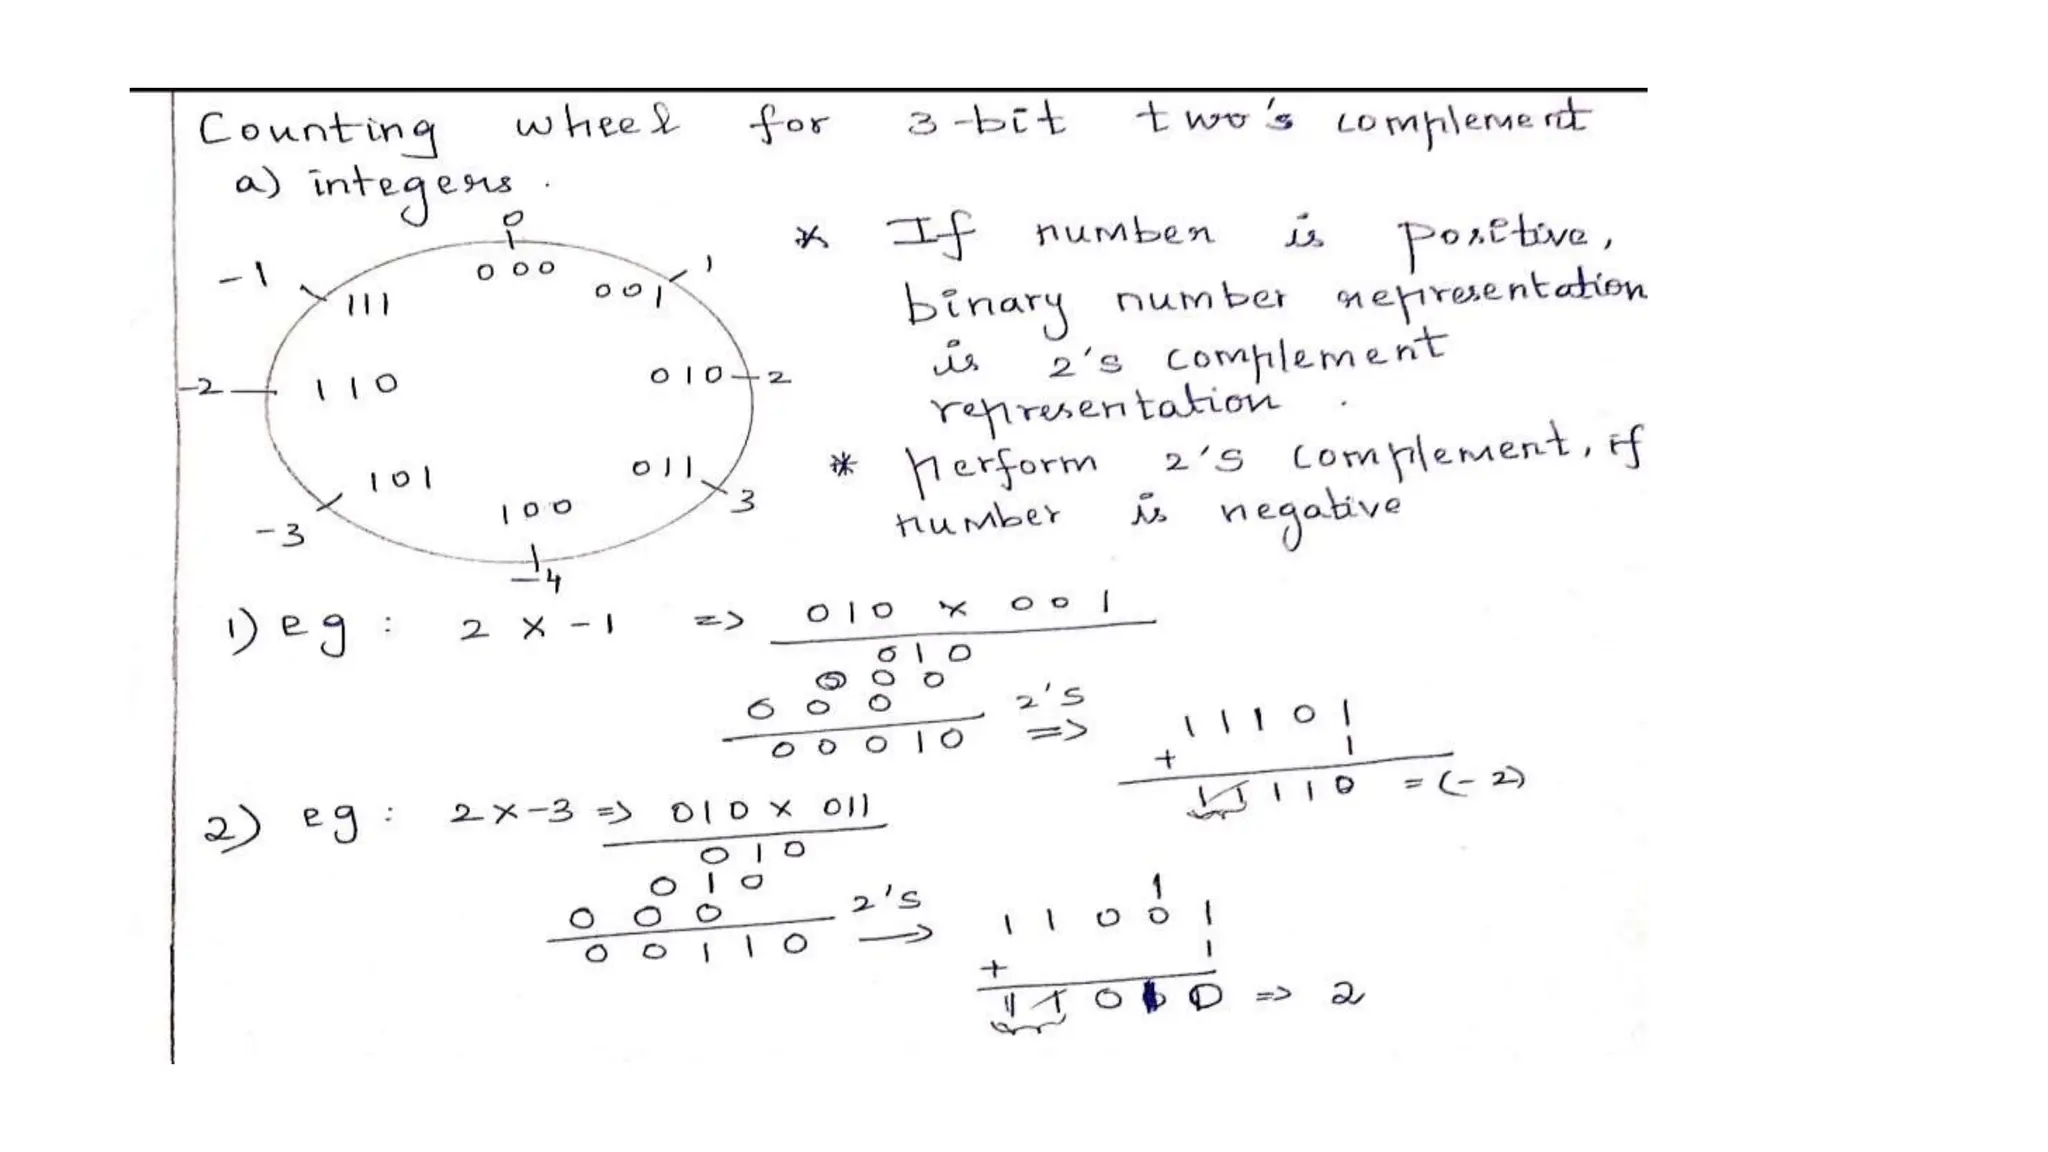 Counting wheel for 3-bit two's complement
a) integers.
0
000
1
001
2
010
3
011
-4
100
-3
101
-2
110
-1
111
* If number is positive,
binary number representation
is 2's complement
representation.
* perform 2's complement, if
number is negative
1) eg : 2 x -1 => 010 x 001
010
000
000
00010 2's =>
11101
+ 1
11110 = (-2)
2) eg : 2 x -3 => 010 x 011
010
010
000
00110 2's →
1
11001
+ 1
11010 => 2